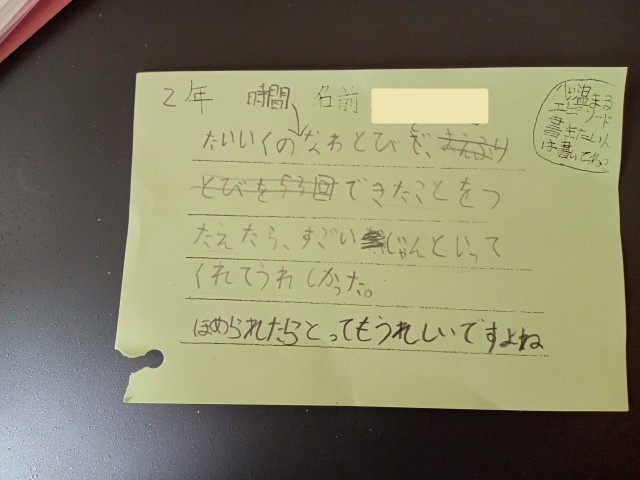 2年 時間 名前
たいいくのなわとびで、まえふり
とびを53回できたことをつ
たえたら、すごいじゃんといって
くれてうれしかった。
ほめられたらとってもうれしいですよね
心温まる
エピソード
書きたい人
は書いてね。